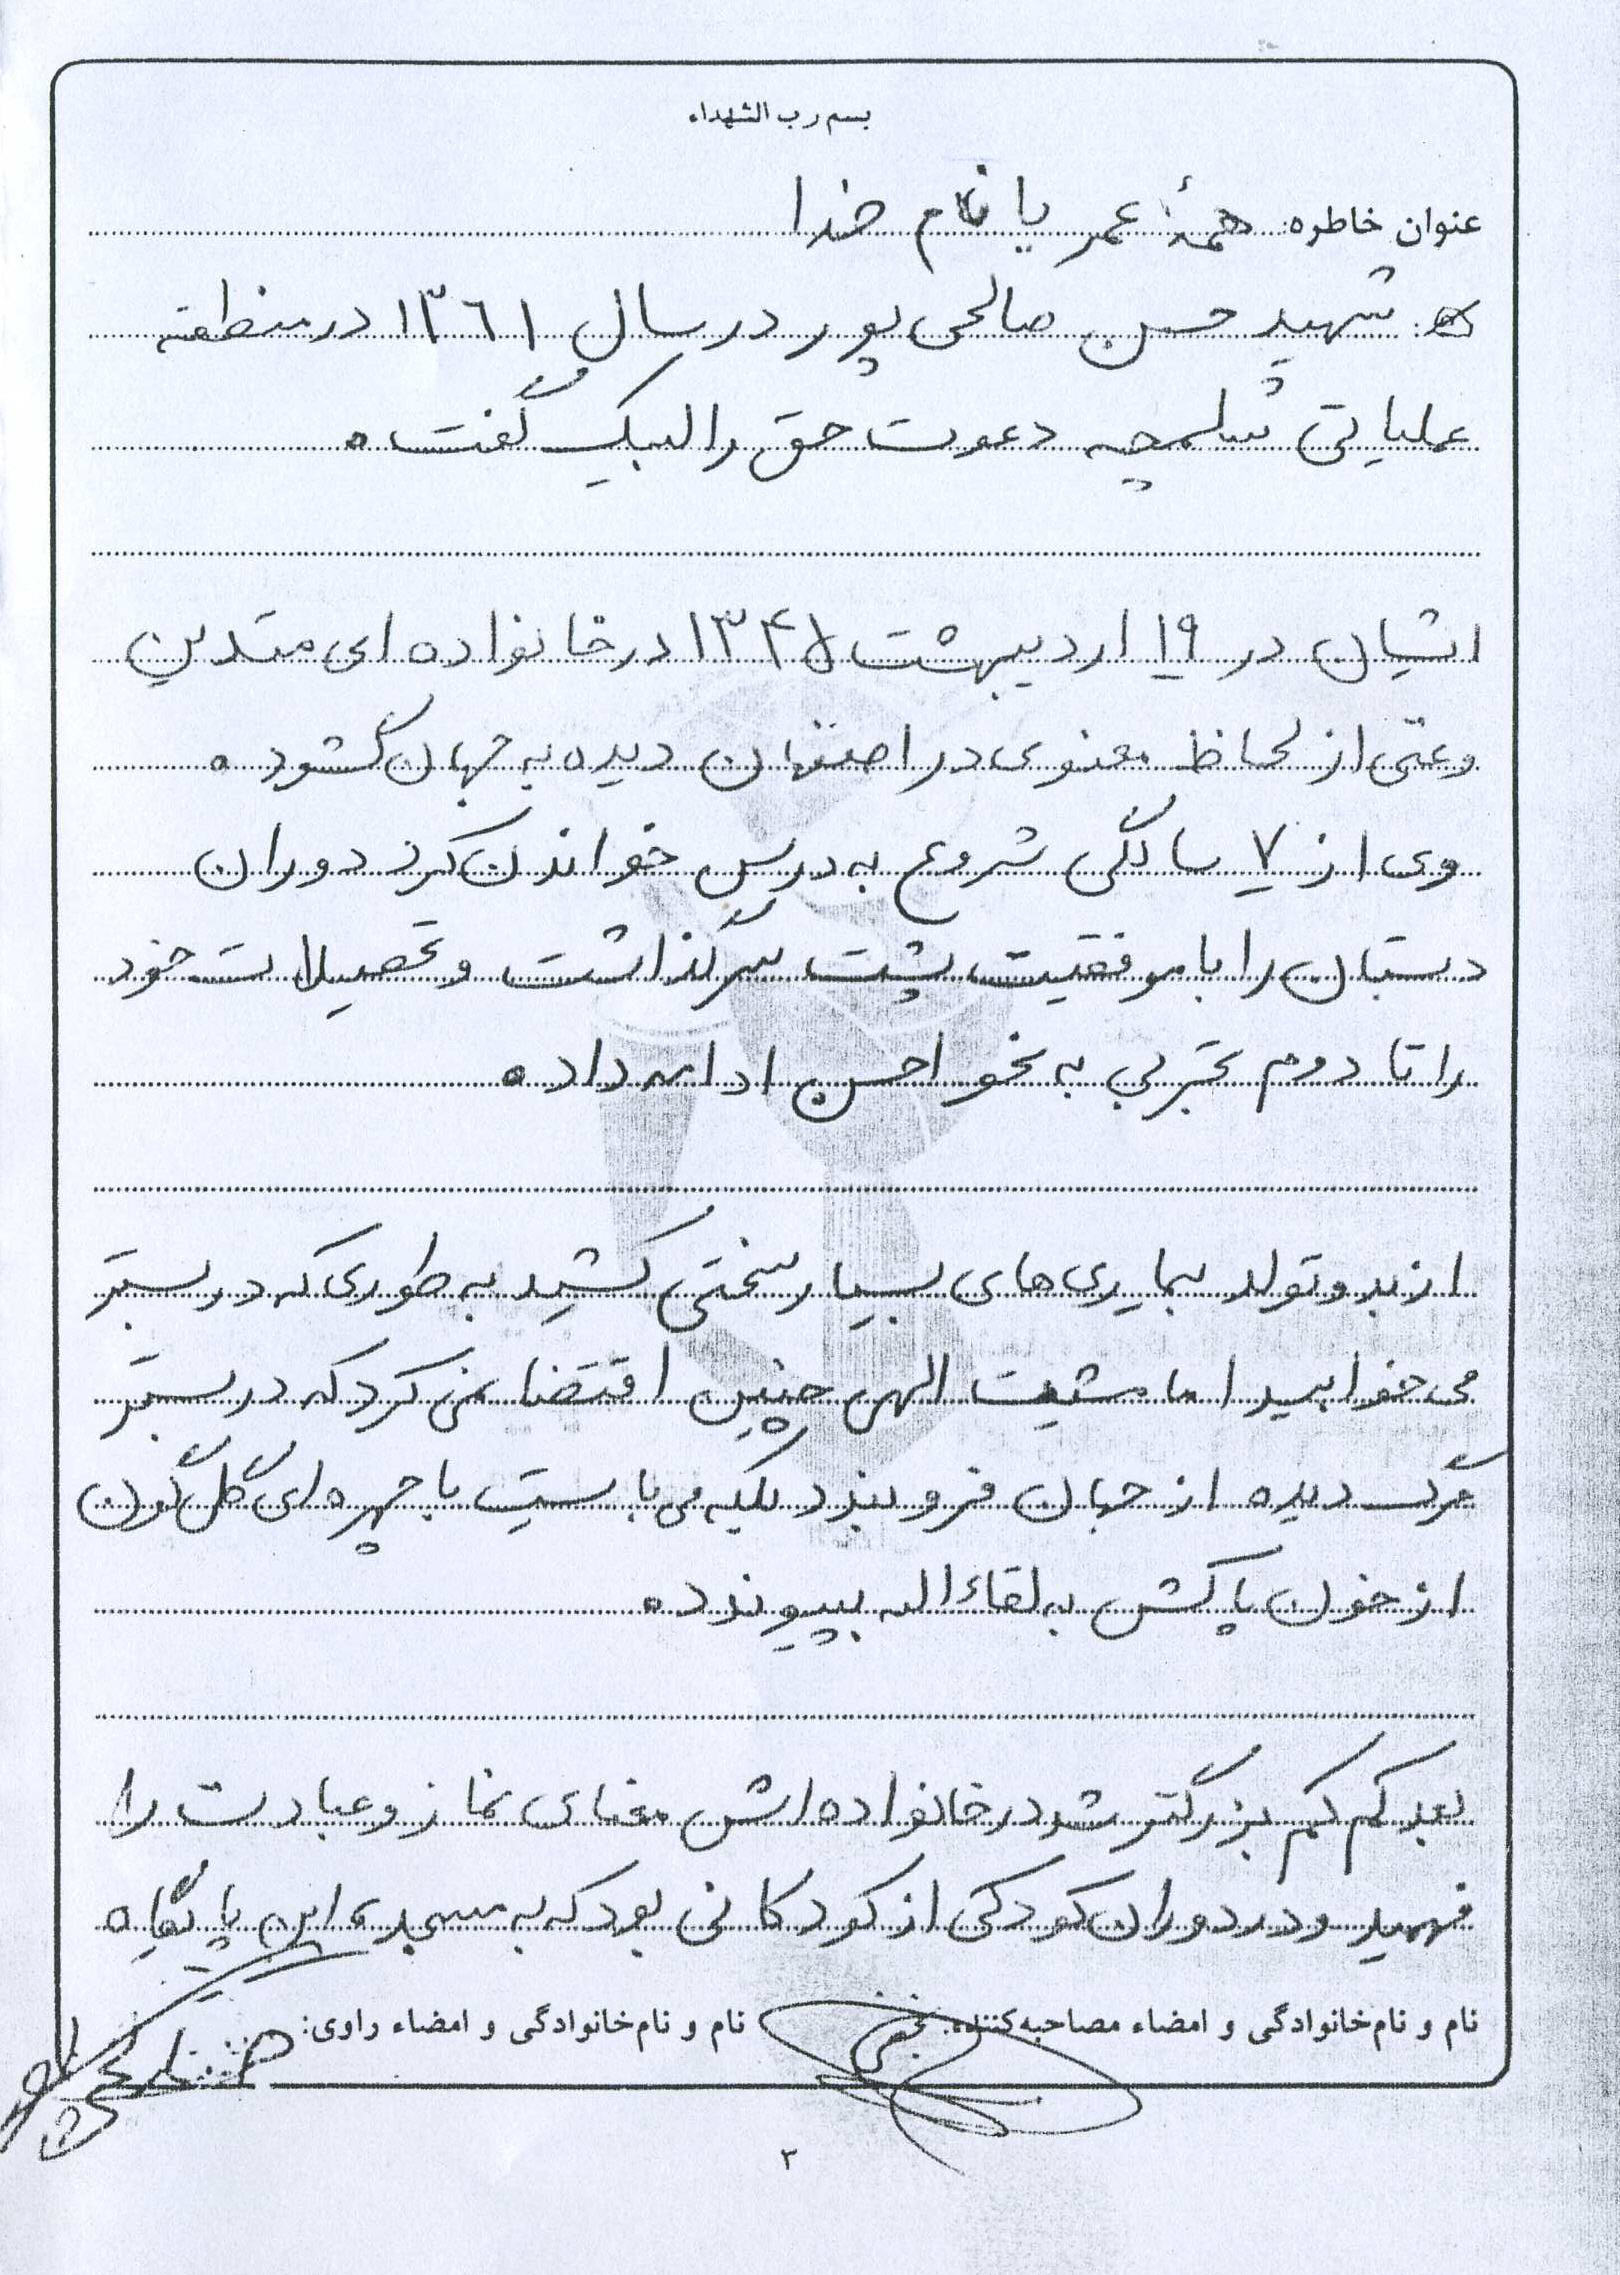 بسم رب الشهداء
عنوان خاطره: همهٔ عمر با نام خدا
شهید حسن صالحی پور در سال ۱۳۶۱ در منطقه
عملیاتی شلمچه دعوت حق را لبیک گفت.
ایشان در ۱۹ اردیبهشت ۱۳۴۵ در خانواده ای متدین
وغنی از لحاظ معنوی در اصفهان دیده به جهان گشود.
وی از ۷ سالگی شروع به درس خواندن کرد دوران
دبستان را با موفقیت پشت سر گذاشت و تحصیلات خود
را تا دوم تجربی به نحو احسن ادامه داد.
از بدو تولد بیماری های بسیار سختی کشید به طوری که در بستر
می خوابید اما مشیت الهی چنین اقتضا نمی کرد که در بستر
مرگ دیده از جهان فرو بندد بلکه می بایست با چهره ای گل گون
از خون پاکش به لقاء اله بپیوندد.
بعد کم کم بزرگتر شد در خانواده اش معنای نماز و عبادت را
فهمید و در دوران کودکی از کودکانی بود که به مسجد، این پایگاه
نام و نام‌خانوادگی و امضاء مصاحبه‌کننده:
نام و نام‌خانوادگی و امضاء راوی:
۳